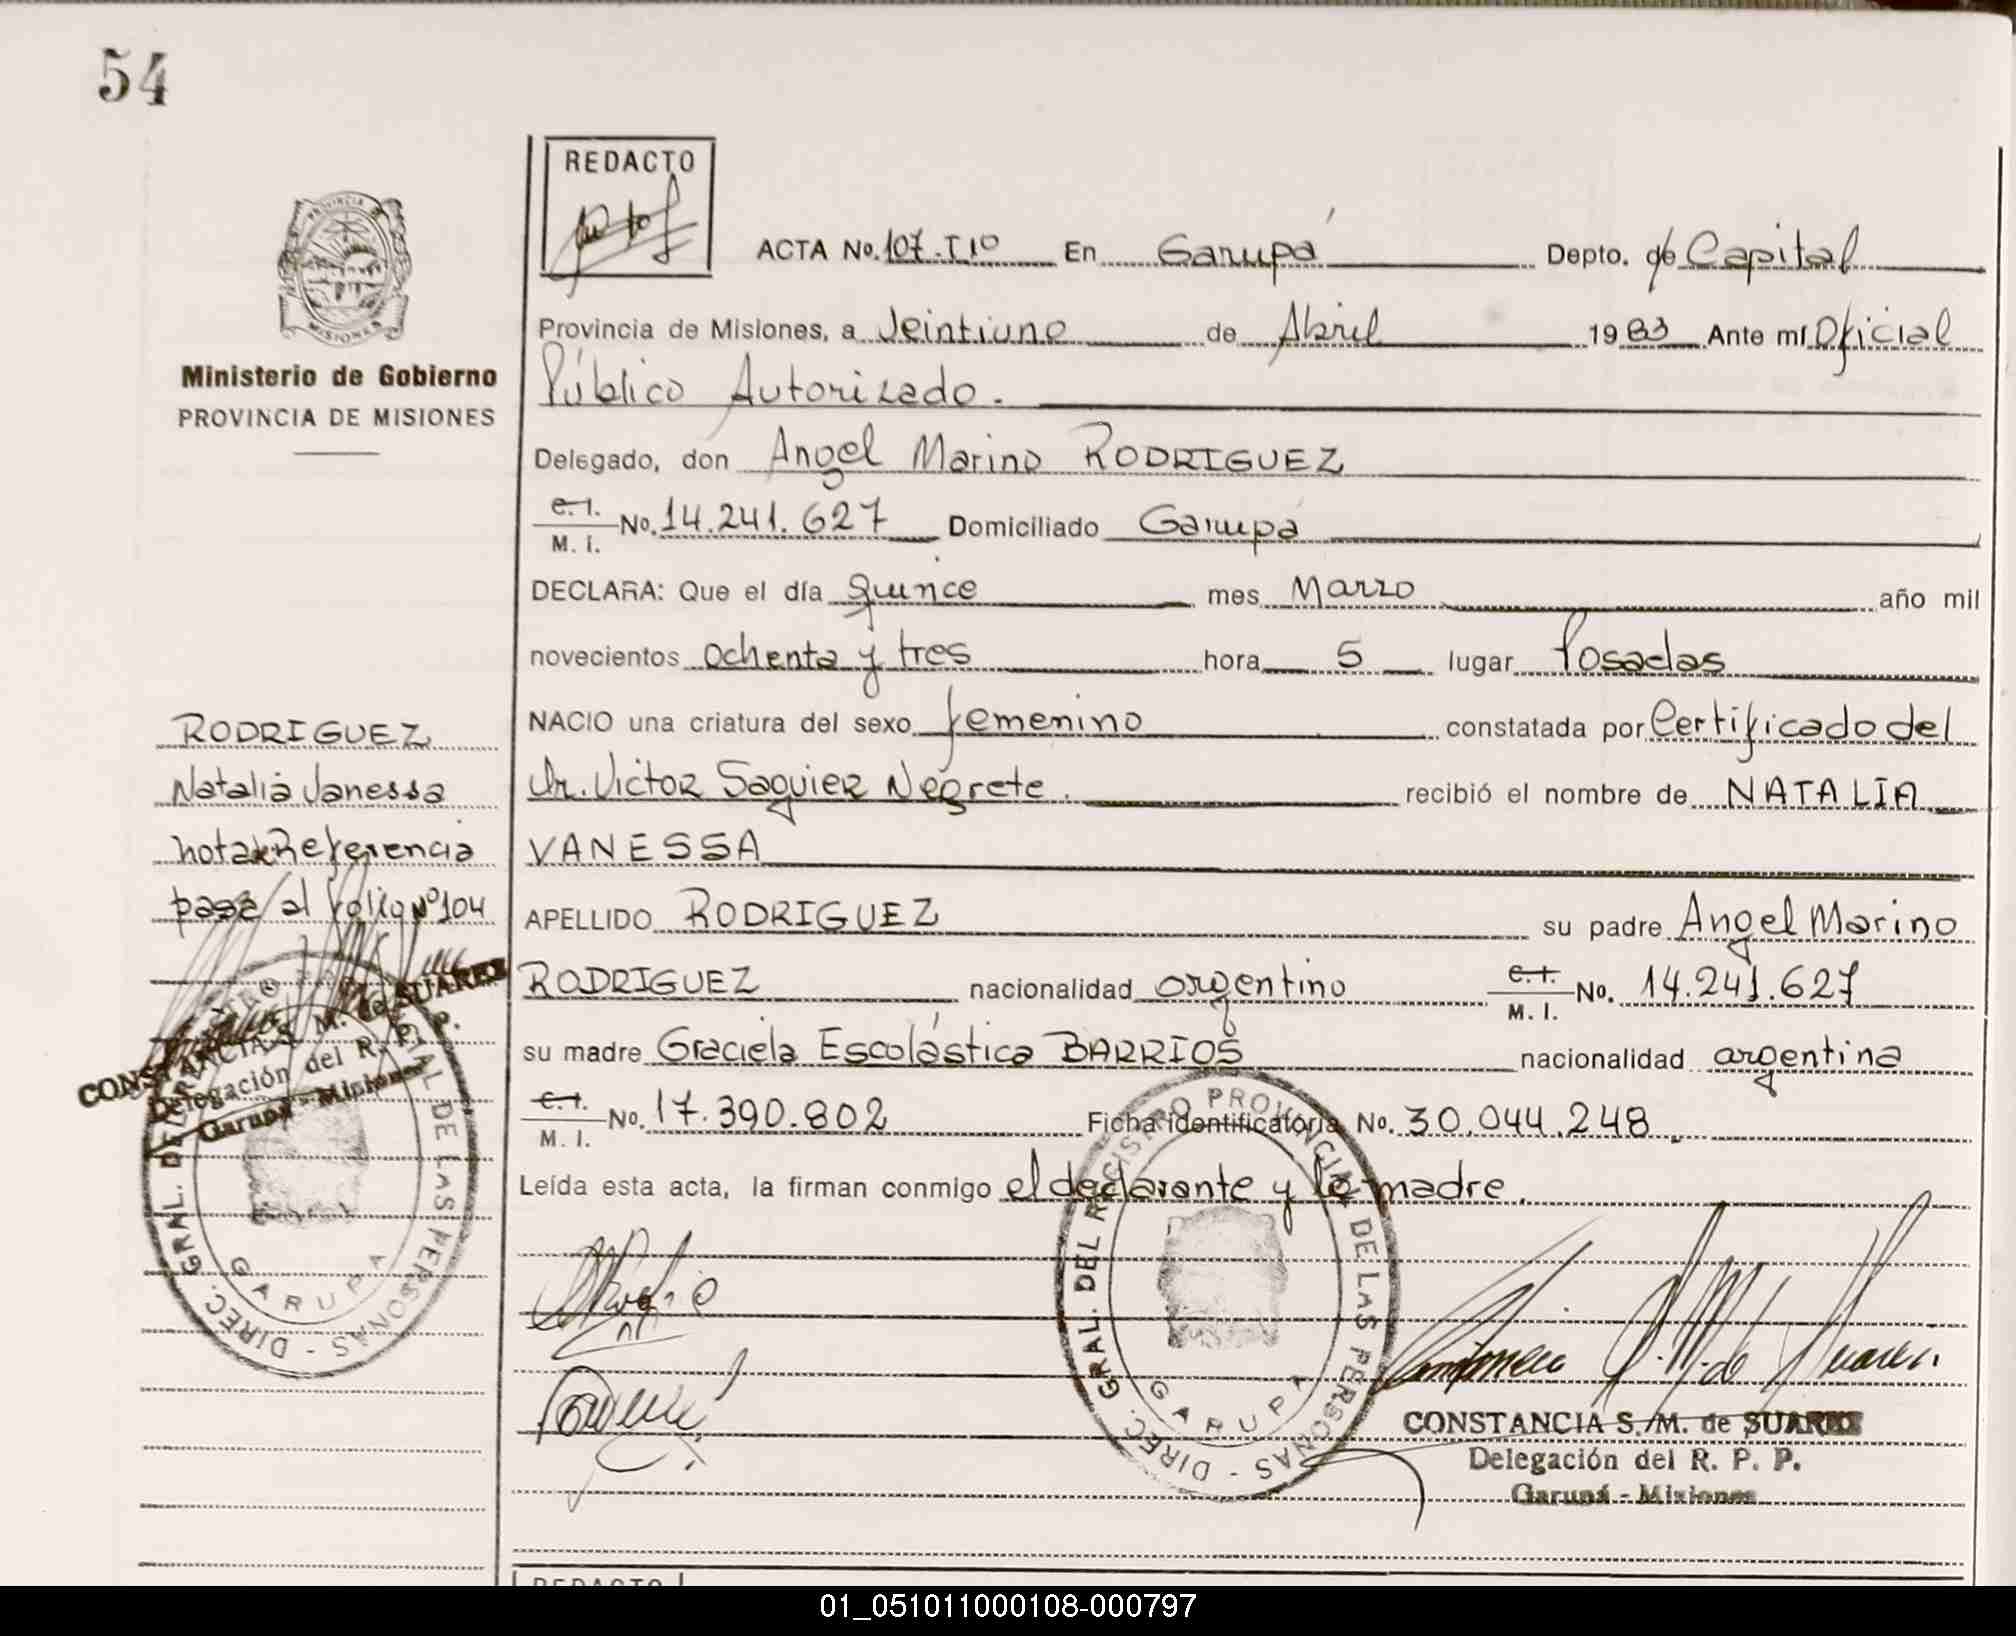 54
REDACTO
ACTA No. 107.Tº1º En Garupá Depto. de Capital
PROVINCIA DE MISIONES
Provincia de Misiones, a Veintiuno de Abril 1983 Ante mí Oficial
Ministerio de Gobierno
PROVINCIA DE MISIONES
Público Autorizado.
Delegado, don Angel Marino RODRIGUEZ
C. I. M. I. No. 14.241.627 Domiciliado Garupá
DECLARA: Que el día quince mes Marzo año mil
novecientos ochenta y tres hora 5 lugar Posadas
NACIO una criatura del sexo femenino constatada por Certificado del
Dr. Victor Saguier Negrete. recibió el nombre de NATALIA
VANESSA
APELLIDO RODRIGUEZ su padre Angel Marino
RODRIGUEZ nacionalidad argentino C. I. M. I. No. 14.241.627
su madre Graciela Escolástica BARRIOS nacionalidad argentina
C. I. M. I. No. 17.390.802 Ficha identificatoria No. 30.044.248
Leída esta acta, la firman conmigo el declarante y la madre.
RODRIGUEZ
Natalia Vanessa
nota Referencia
pase al folio Nº 104
CONSTANCIA S. M. de SUAREZ
Delegación del R. P. P.
Garupá - Misiones
DIREC. GRAL. DEL REGISTRO PROVINCIAL DE LAS PERSONAS - GARUPA
DIREC. GRAL. DEL REGISTRO PROVINCIAL DE LAS PERSONAS - GARUPA
CONSTANCIA S. M. de SUAREZ
Delegación del R. P. P.
Garupá - Misiones
REDACTO
01_051011000108-000797